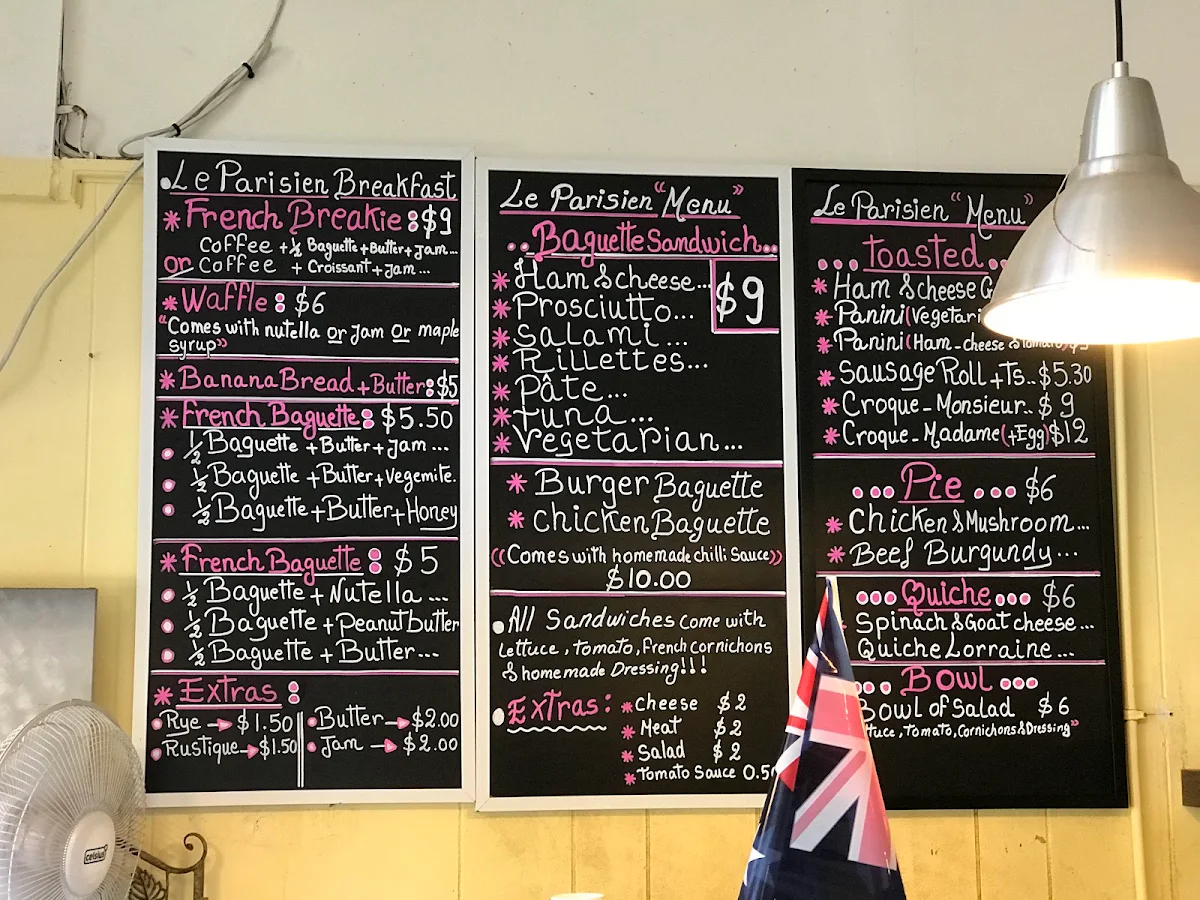 Le Parisien Breakfast
* French Breakie : $9
Coffee + ½ Baguette + Butter + Jam...
or Coffee + Croissant + Jam...
* Waffle : $6
"Comes with nutella or Jam or maple
syrup"
* Banana Bread + Butter : $5
* French Baguette : $5.50
½ Baguette + Butter + Jam ...
½ Baguette + Butter + Vegemite.
½ Baguette + Butter + Honey
* French Baguette : $5
½ Baguette + Nutella ...
½ Baguette + Peanut Butter
½ Baguette + Butter...
* Extras :
Rye → $1.50
Rustique → $1.50
Butter → $2.00
Jam → $2.00
Le Parisien "Menu"
.. Baguette Sandwich..
* Ham & cheese... $9
* Prosciutto...
* Salami...
* Rillettes...
* Pâte...
* Tuna...
* Vegetarian...
* Burger Baguette
* Chicken Baguette
((Comes with homemade chilli Sauce))
$10.00
All Sandwiches come with
lettuce, Tomato, French cornichons
& homemade Dressing!!!
Extras :
* Cheese $2
* Meat $2
* Salad $2
* Tomato Sauce
Le Parisien "Menu"
... toasted..
* Ham & cheese
* Panini
* Panini (Ham - cheese
* Sausage Roll + Ts.. $5.30
* Croque - Monsieur.. $9
* Croque - Madame (+Egg) $12
... Pie ... $6
* Chicken & Mushroom...
* Beef Burgundy...
... Quiche ... $6
Spinach & Goat cheese...
Quiche Lorraine...
Bowl ...
Bowl of Salad $6
Tomato, Cornichons & Dressing"
celsius